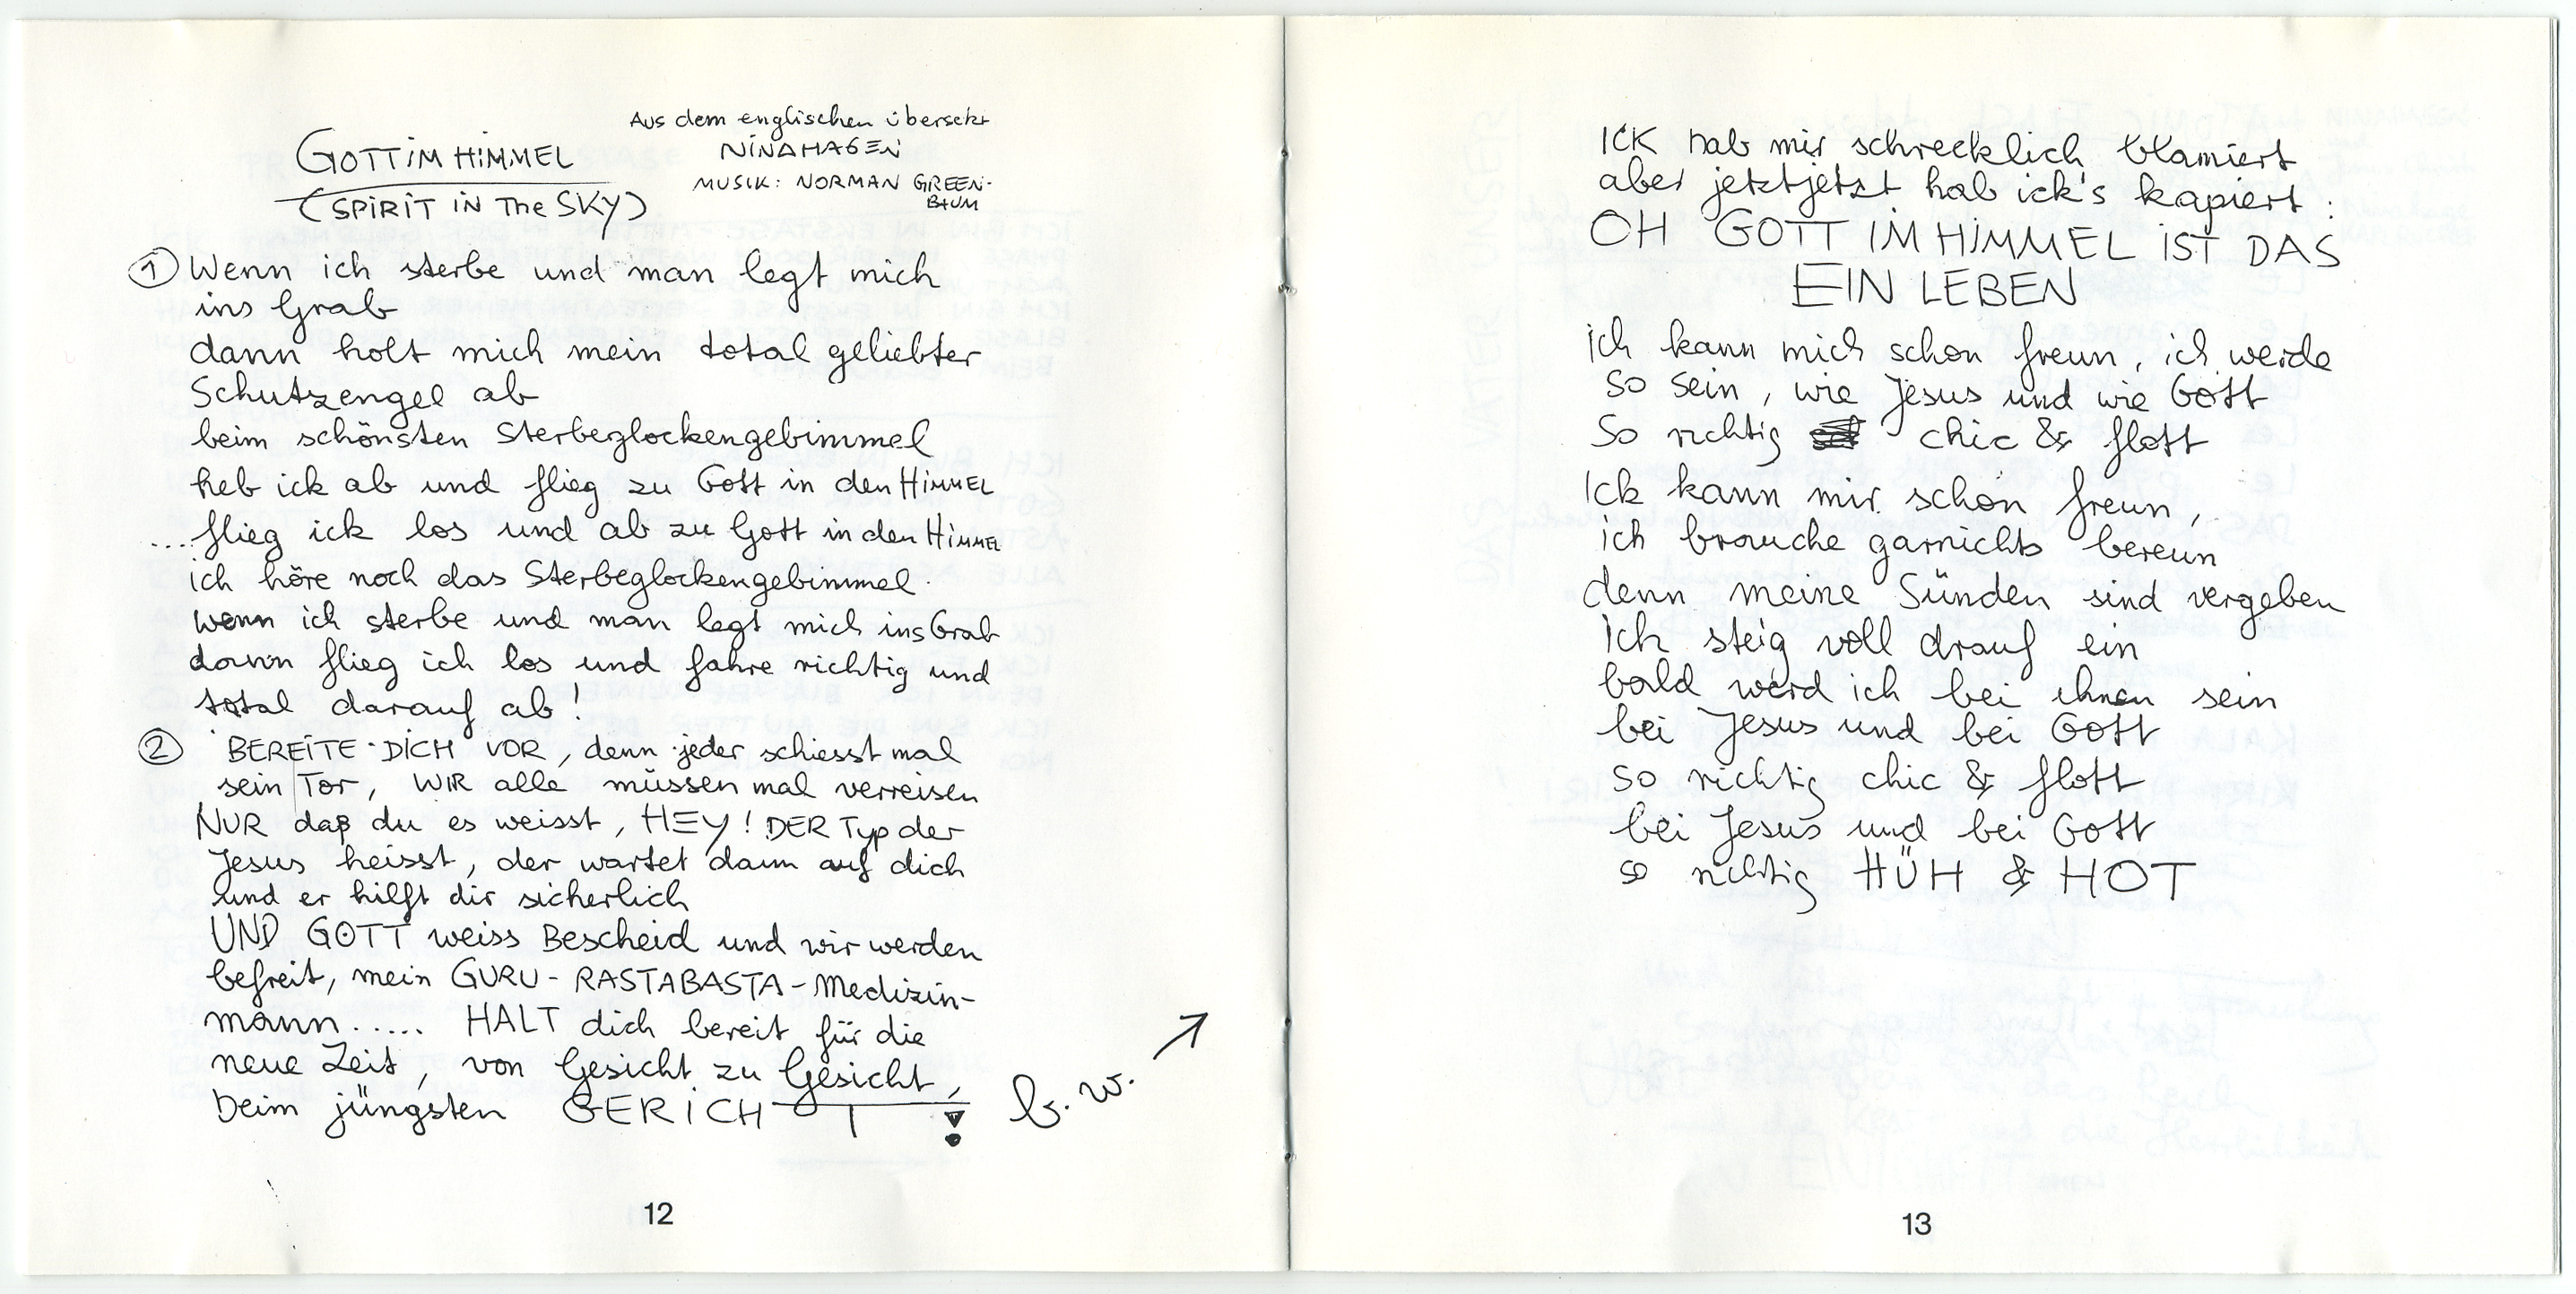 GOTT IM HIMMEL
(SPIRIT IN The SKY)
Aus dem englischen übersetzt
NINAHAGEN
MUSIK: NORMAN GREEN-
BAUM
① Wenn ich sterbe und man legt mich
ins Grab
dann holt mich mein total geliebter
Schutzengel ab
beim schönsten Sterbeglockengebimmel
heb ick ab und flieg zu Gott in den HIMMEL
...flieg ick los und ab zu Gott in den HIMMEL
ich höre noch das Sterbeglockengebimmel.
wenn ich sterbe und man legt mich ins Grab
dann flieg ich los und fahre richtig und
total darauf ab!
② BEREITE DICH VOR, denn jeder schiesst mal
sein TOR, WIR alle müssen mal verreisen
NUR daß du es weisst, HEY! DER Typ der
Jesus heisst, der wartet dann auf dich
und er hilft dir sicherlich
UND GOTT weiss Bescheid und wir werden
befreit, mein GURU-RASTABASTA-Medizin-
mann..... HALT dich bereit für die
neue Zeit, von Gesicht zu Gesicht,
beim jüngsten GERICHT!
b.w.
12
ICK hab mir schrecklich blamiert
aber jetztjetzt hab ick's kapiert:
OH GOTT IM HIMMEL IST DAS
EIN LEBEN
ich kann mich schon freun, ich werde
so sein, wie Jesus und wie Gott
So richtig chic & flott
Ick kann mir schon freun,
ich brauche garnichts bereun
denn meine Sünden sind vergeben
Ich steig voll drauf ein
bald werd ich bei ihnen sein
bei Jesus und bei Gott
so richtig chic & flott
bei Jesus und bei Gott
so richtig HÜH & HOT
13